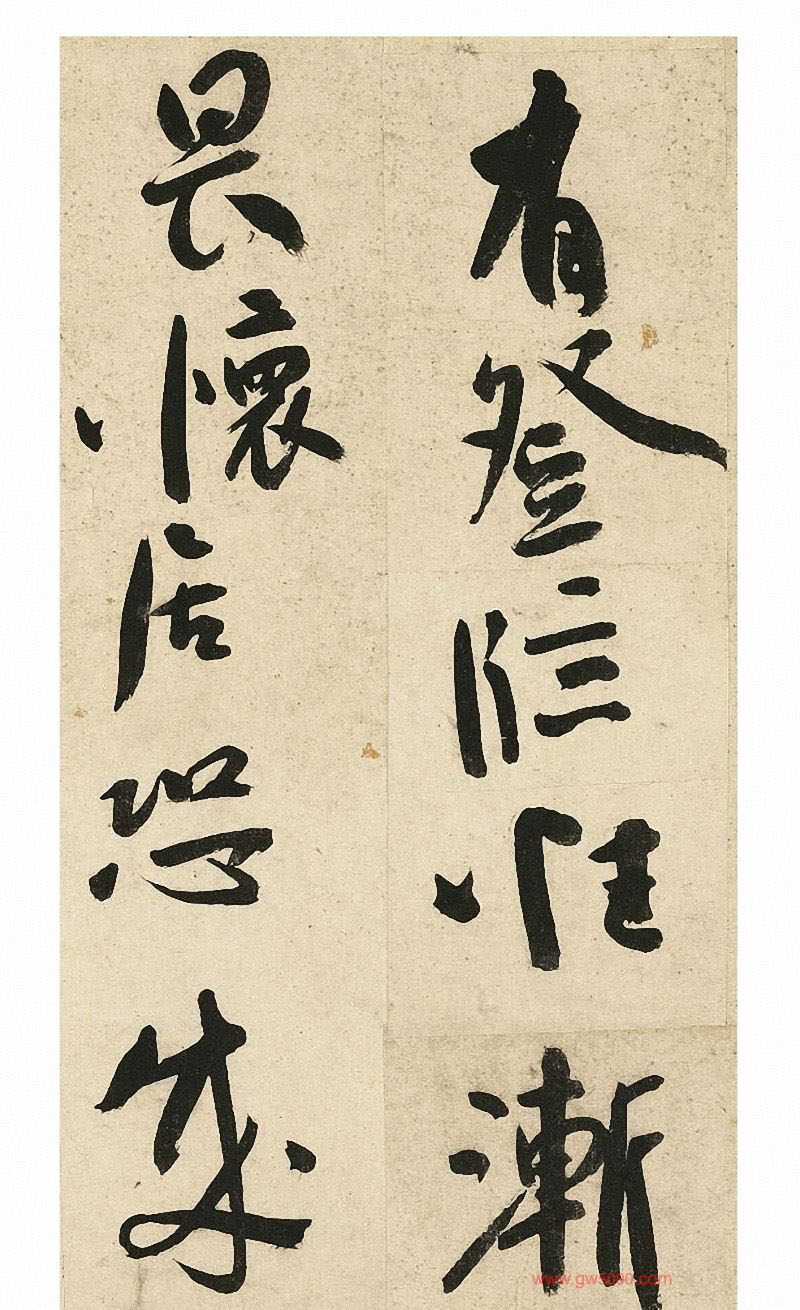 有登臨惟漸
畏懷居恐成
www.gw5000.com